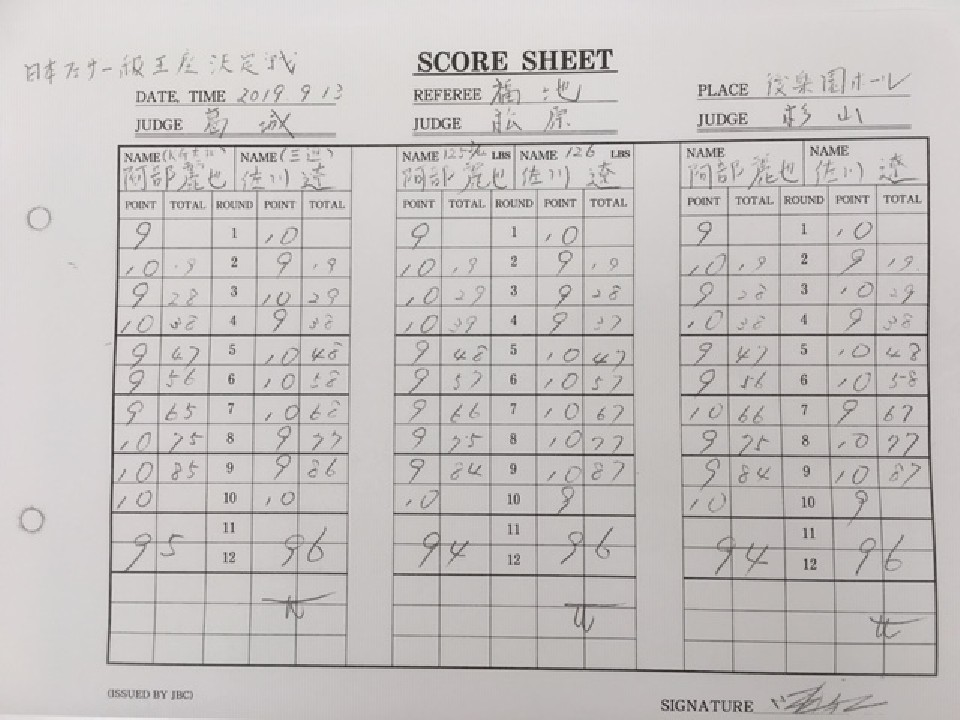 日本フェザー級王座決定戦
SCORE SHEET
DATE, TIME 2019 9 13 REFEREE 福地 PLACE 後楽園ホール
JUDGE 葛城 JUDGE 松原 JUDGE 杉山
NAME NAME (三迫) NAME 125 3/4 LBS NAME 126 LBS NAME NAME
阿部麗也 佐川 遼 阿部麗也 佐川 遼 阿部麗也 佐川 遼
POINT TOTAL ROUND POINT TOTAL POINT TOTAL ROUND POINT TOTAL POINT TOTAL ROUND POINT TOTAL
9 1 10 9 1 10 9 1 10
10 19 2 9 19 10 19 2 9 19 10 19 2 9 19
9 28 3 10 29 10 29 3 9 28 9 28 3 10 29
10 38 4 9 38 10 39 4 9 37 10 38 4 9 38
9 47 5 10 48 9 48 5 10 47 9 47 5 10 48
9 56 6 10 58 9 57 6 10 57 9 56 6 10 58
9 65 7 10 68 9 66 7 10 67 10 66 7 9 67
10 75 8 9 77 9 75 8 10 77 9 75 8 10 77
10 85 9 9 86 9 84 9 10 87 9 84 9 10 87
10 10 10 10 10 9 10 10 9
11 11 11
95 96 94 96 94 96
12 12 12
(ISSUED BY JBC)
SIGNATURE